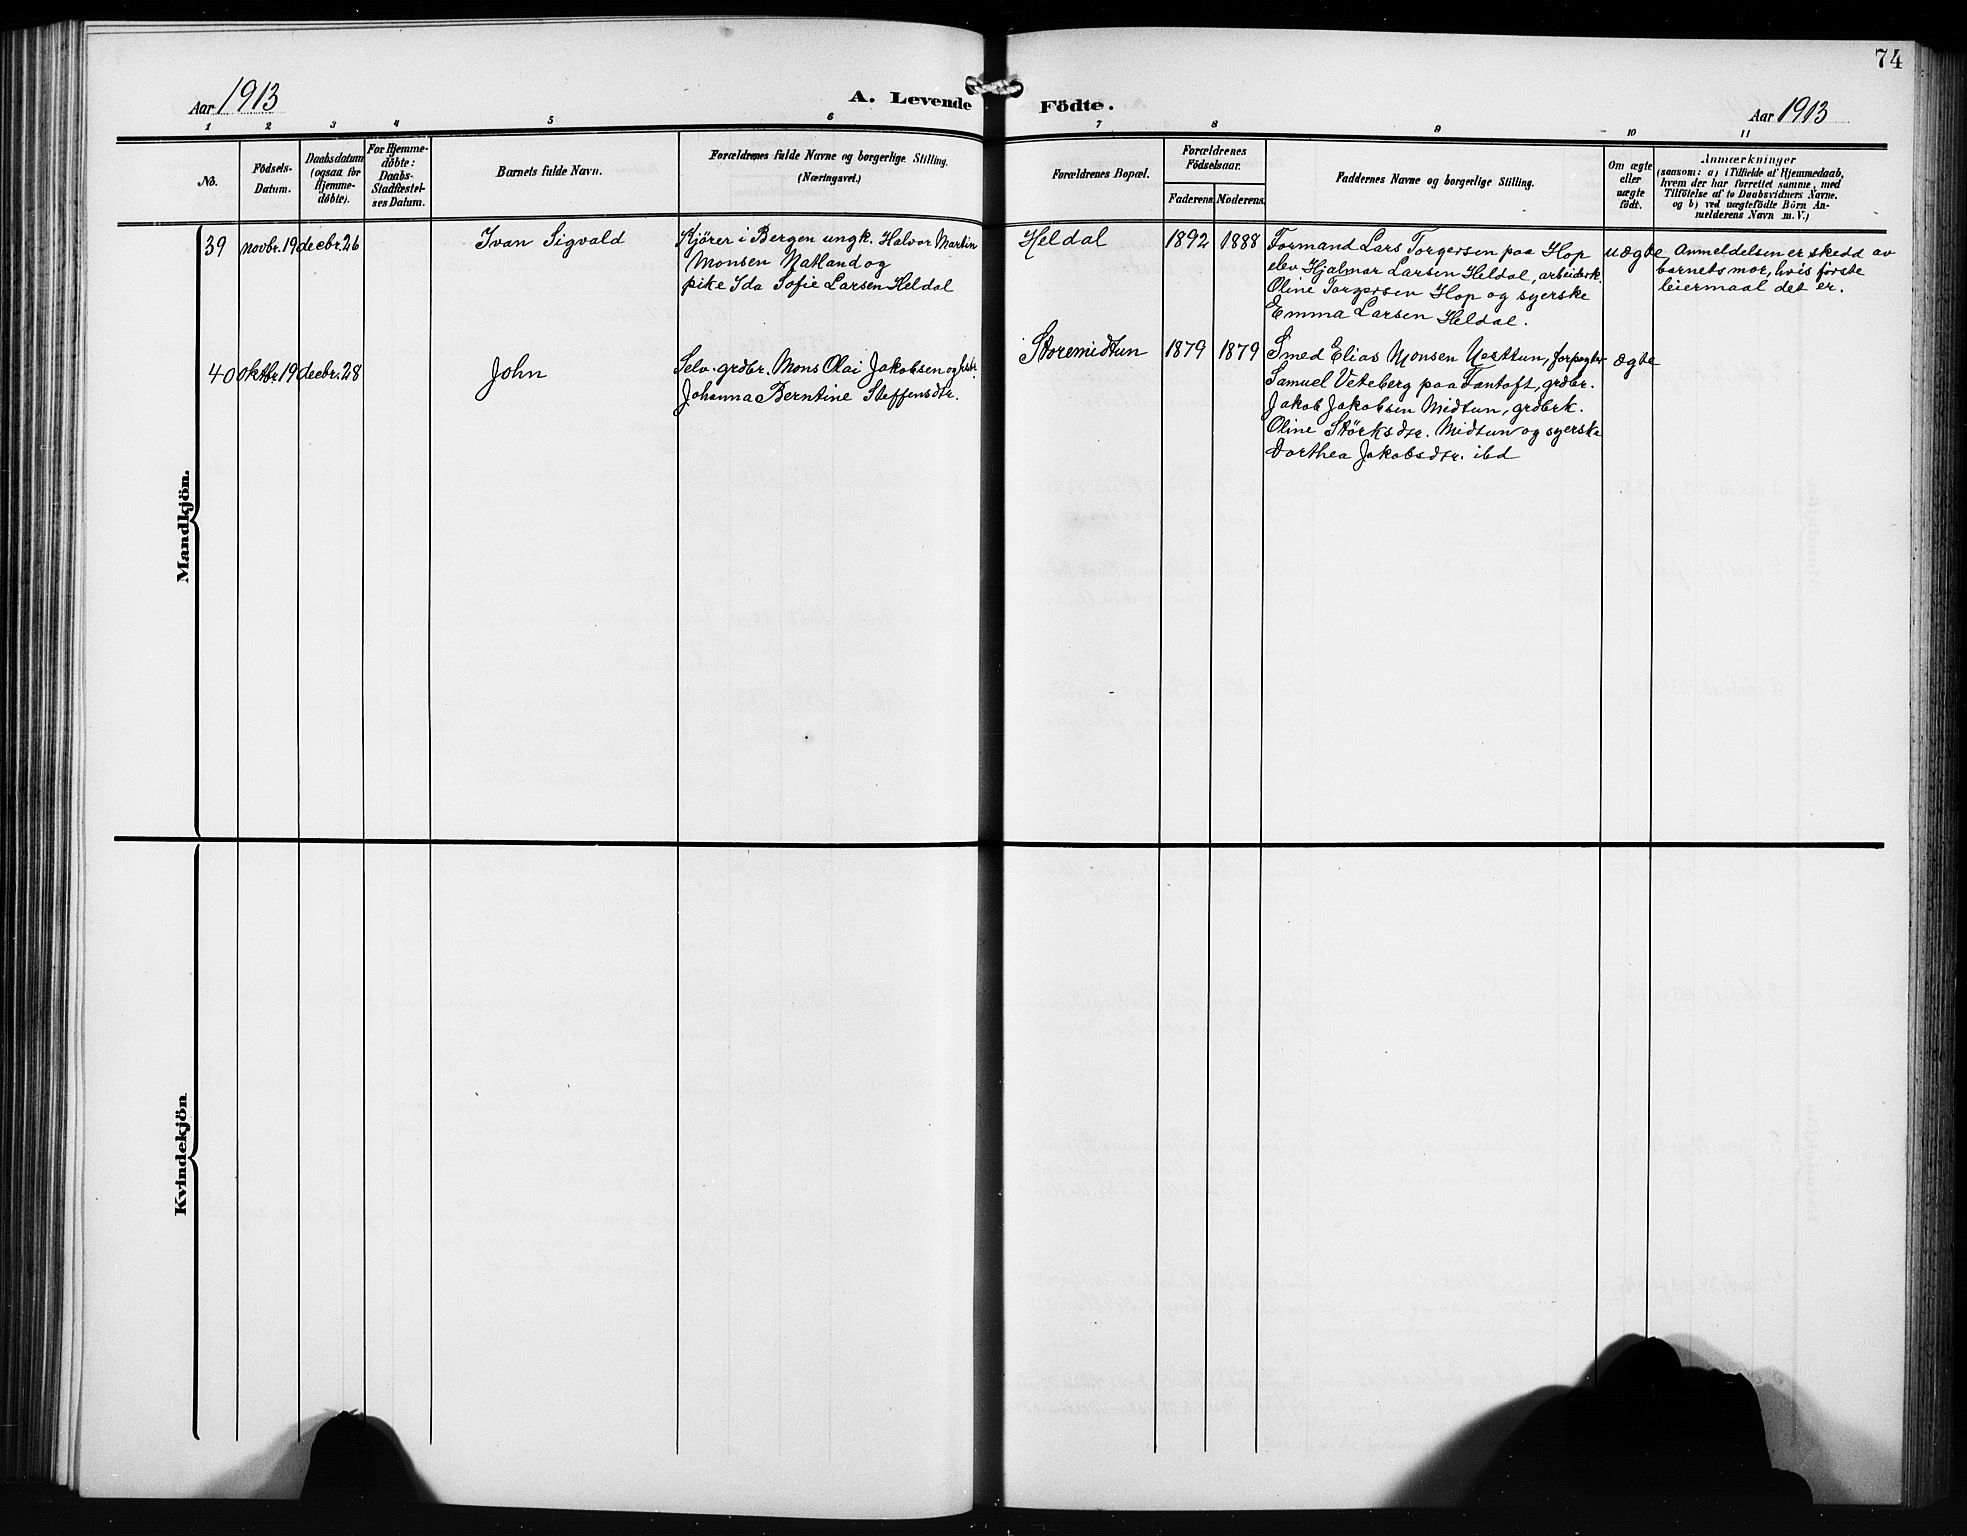 74
Aar 1913
A. Levende Födte.
Aar 1913
1 2 3 4 5 6 7 8 9 10 11
No.
Födsels-
Datum.
Daabsdatum
(ogsaa for
Hjemme-
døbte).
For Hjemme-
døbte:
Daabs-
Stadfæstel-
ses Datum.
Barnets fulde Navn.
Forældrenes fulde Navne og borgerlige Stilling.
(Næringsvei.)
Forældrenes Bopæl.
Forældrenes
Födselsaar.
Faderens.
Moderens.
Faddernes Navne og borgerlige Stilling.
Om ægte
eller
uægte
födt.
Anmærkninger
(saasom: a) i Tilfælde af Hjemmedaab,
hvem der har forrettet samme, med
Tilföielse af to Daabsvidners Navne.
og b) ved uægtefödte Börn An-
melderens Navn m. V.)
Mandkjön.
39
novbr. 19
decbr. 26
Ivan Sigvald
Kjører i Bergen ungk. Halvor Martin
Monsen Natland og
pike Ida Sofie Larsen Heldal
Heldal
1892
1888
Formand Lars Torgersen paa Hop
elev Hjalmar Larsen Heldal, arbeiderk.
Oline Torgersen Hop og syerske
Emma Larsen Heldal.
uægte
Anmeldelsen er skedd av
barnets mor, hvis første
leiermaal det er.
40
oktbr. 19
decbr. 28
John
Selv. grdbr. Mons Olai Jakobsen og hstr.
Johanna Berntine Steffensdtr.
Storemidtun
1879
1879
Smed Elias Monsen Nesttun, forpagter
Samuel Veteberg paa Fantoft, grdbr.
Jakob Jakobsen Midtun, grdbrk.
Oline Størksdtr. Midtun og syerske
Dorthea Jakobsdtr. ibd
ægte
Kvindekjön